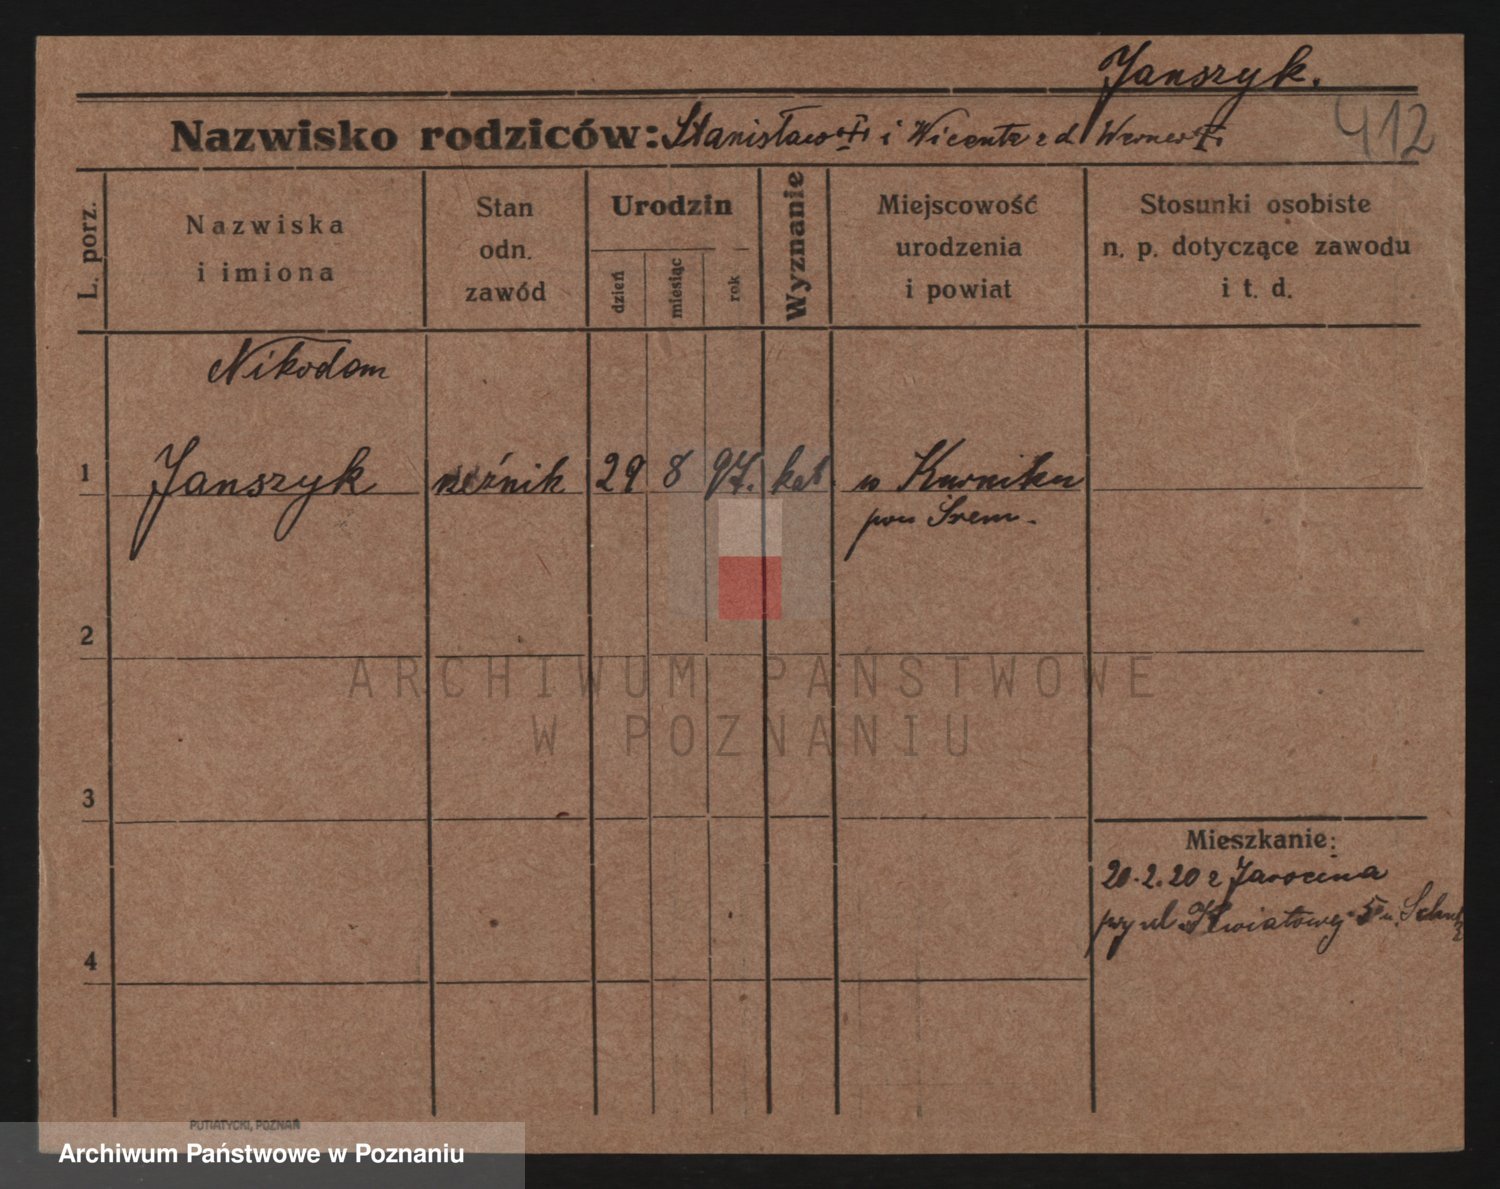 Janszyk.
412
Nazwisko rodziców: Stanisław i Wicenta z d Werner
L. porz.
Nazwiska
i imiona
Stan
odn.
zawód
Urodzin
dzień
miesiąc
rok
Wyznanie
Miejscowość
urodzenia
i powiat
Stosunki osobiste
n. p. dotyczące zawodu
i t. d.
Nikodem
1 Janszyk rzeźnik 29 8 97. kat. w Kurniku
pow Srem.
2
ARCHIWUM PAŃSTWOWE
W POZNANIU
3
Mieszkanie:
20.2.20 z Jarocina
przy ul. Kwiatowej 5 u.
4
PUTIATYCKI, POZNAŃ
Archiwum Państwowe w Poznaniu